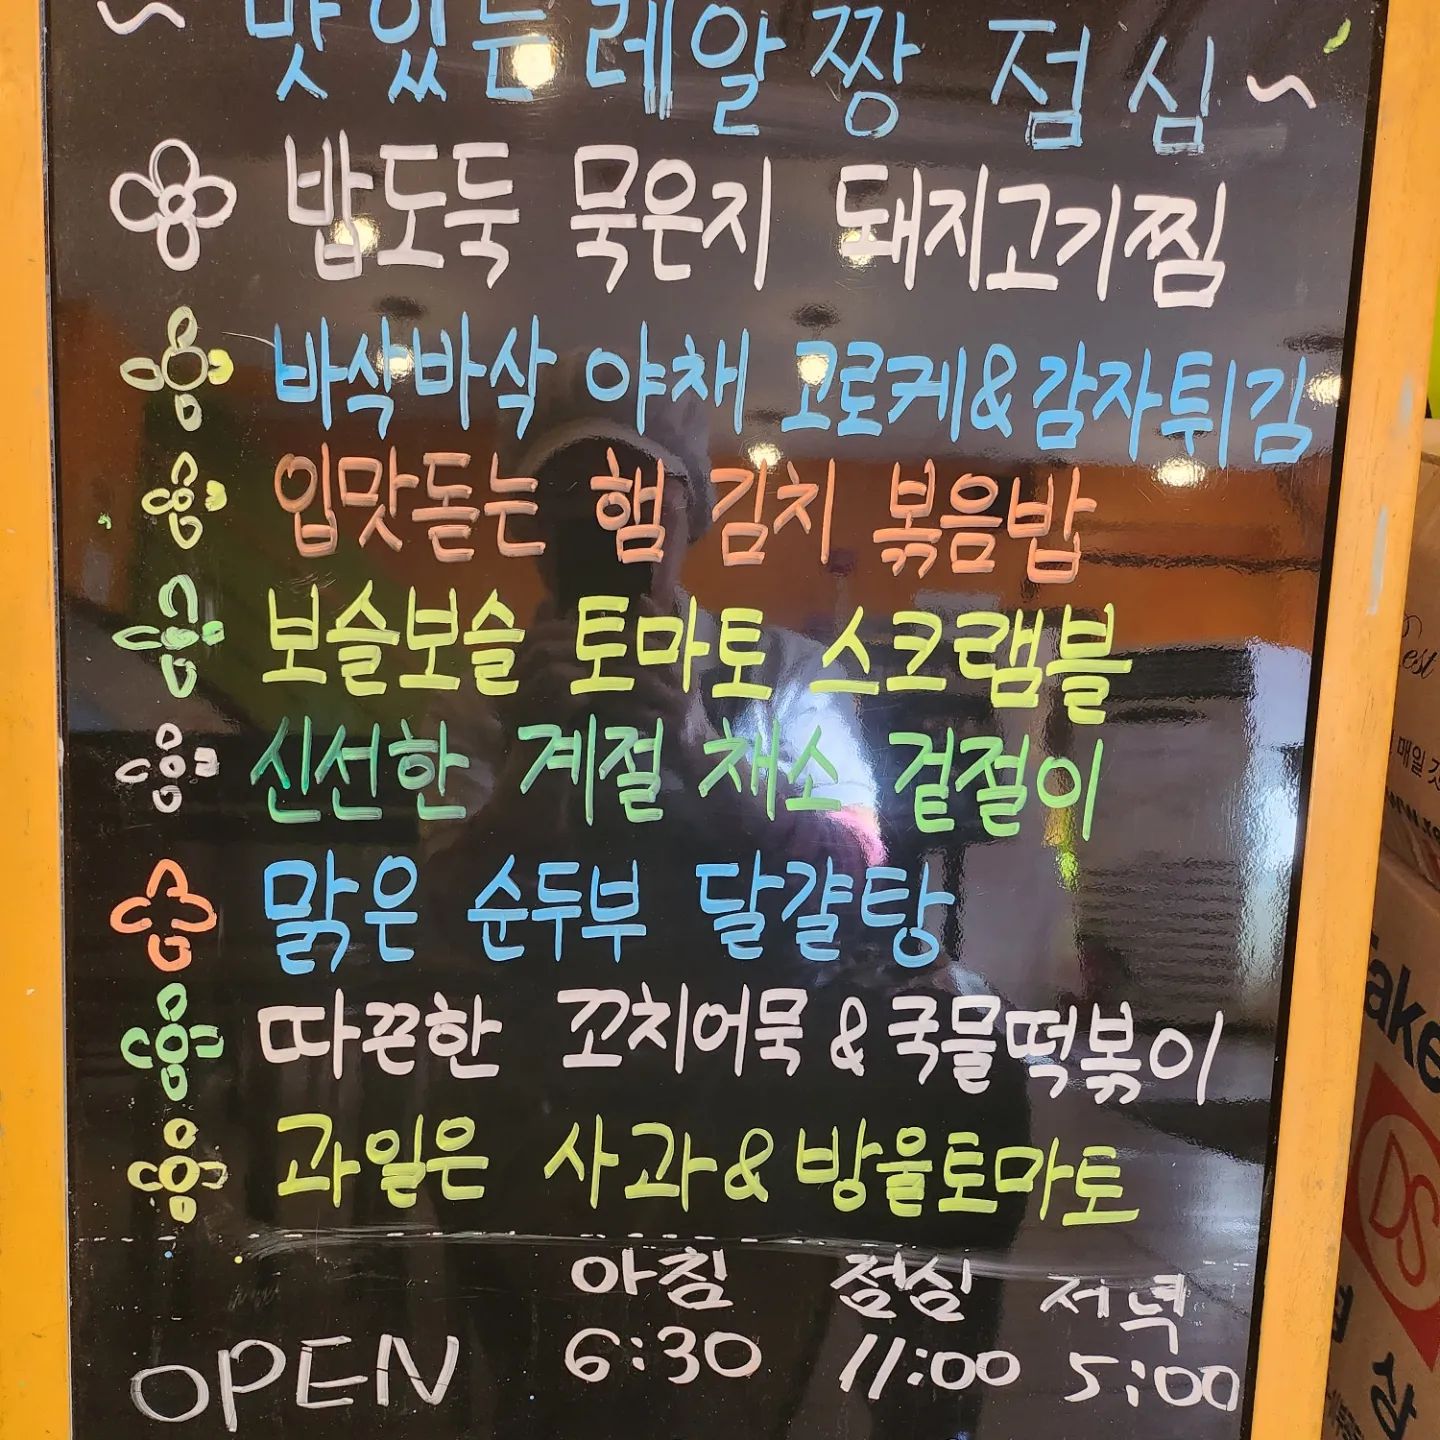 ~ 맛있는 레알 짱 점심 ~
밥도둑 묵은지 돼지고기찜
바삭바삭 야채 고로케&감자튀김
입맛돋는 햄 김치 볶음밥
보슬보슬 토마토 스크램블
신선한 계절 채소 겉절이
맑은 순두부 달걀탕
따끈한 꼬치어묵 & 국물떡볶이
과일은 사과 & 방울토마토
아침 점심 저녁
OPEN 6:30 11:00 5:00
est
매일
DS